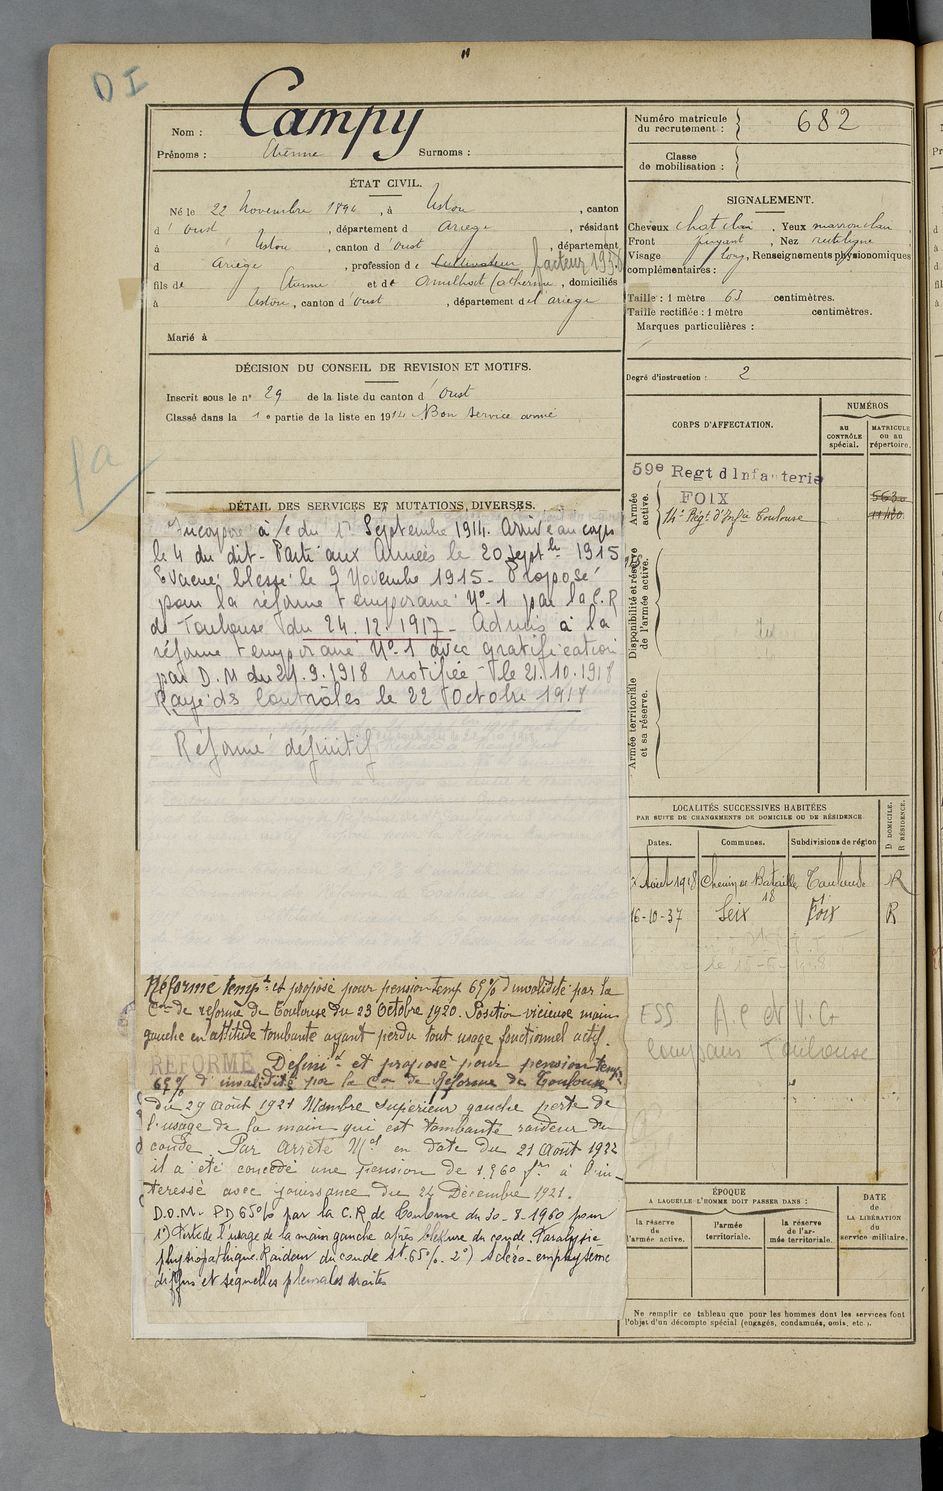 D I
Nom : Campy
Prénoms : Etienne Surnoms :
Numéro matricule du recrutement : 682
Classe de mobilisation :
ÉTAT CIVIL.
Né le 22 Novembre 1894, à Ustou, canton
d'Oust, département d Ariège, résidant
à Ustou, canton d'Oust, département
d Ariège, profession de Cultivateur facteur
fils de Etienne et de Catherine, domiciliés
à Ustou, canton d'Oust, département de l'ariege
Marié à
SIGNALEMENT.
Cheveux chat clair, Yeux marron clair,
Front fuyant, Nez rectiligne
Visage long, Renseignements physionomiques
complémentaires :
Taille : 1 mètre 63 centimètres.
Taille rectifiée : 1 mètre centimètres.
Marques particulières :
Degré d'instruction : 2
DÉCISION DU CONSEIL DE REVISION ET MOTIFS.
Inscrit sous le n° 29 de la liste du canton d'Oust
Classé dans la 1e partie de la liste en 1914 Bon service armé
CORPS D'AFFECTATION.
NUMÉROS
AU CONTRÔLE spécial.
MATRICULE OU AU répertoire.
Armée active.
59e Regt d'Infanterie
FOIX
14e Régt d'Infie Toulouse
Disponibilité et réserve de l'armée active.
Armée territoriale et sa réserve.
DÉTAIL DES SERVICES ET MUTATIONS DIVERSES.
Incorporé à /c du 1er Septembre 1914. Arrivé au corps
le 4 du dit - Parti aux Armées le 20 Septbre 1915
Evacué blessé le 9 Novembre 1915 - Proposé
pour la réforme temporaire N° 1 par la C.R
de Toulouse du 24.12.1917 - Admis à la
réforme temporaire N° 1 avec gratification
par D.M du 24.9.1918 notifiée le 21.10.1918
Rayé ds Contrôles le 22 Octobre 1918
Réformé définitif
Réformé tempre et proposé pour pension temp 65% d'invalidité par la
Con de réforme de Toulouse du 23 Octobre 1920. Position vicieuse main
gauche en attitude tombante ayant perdu tout usage fonctionnel actif.
REFORMÉ Définitt et proposé pour pension temp
65% d'invalidité par la Con de Réforme de Toulouse
du 29 août 1921 Membre supérieur gauche perte de
l'usage de la main qui est tombante raideur du
coude. Par Arrêté Mel en date du 21 Août 1922
il a été concédé une pension de 1.560 frs à l'in-
téressé avec jouissance du 24 Décembre 1921.
D.O.M. - PD 65% par la C.R de Toulouse du 30-8-1960 pour
1°) Perte de l'usage de la main gauche après blessure du coude. Paralysie
physiopathique. Raideur du coude St. 65%. 2°) Scléro-emphysème
diffus et séquelles pleurales droites
LOCALITÉS SUCCESSIVES HABITÉES
PAR SUITE DE CHANGEMENTS DE DOMICILE OU DE RÉSIDENCE.
Dates. Communes. Subdivisions de région D DOMICILE. R RÉSIDENCE.
Août 1918 Toulouse R
16-10-37 Seix Foix R
ESS
Toulouse
ÉPOQUE
A LAQUELLE L'HOMME DOIT PASSER DANS :
la réserve de l'armée active.
l'armée territoriale.
la réserve de l'armée territoriale.
DATE de LA LIBÉRATION du service militaire.
Ne remplir ce tableau que pour les hommes dont les services font
l'objet d'un décompte spécial (engagés, condamnés, omis, etc.).